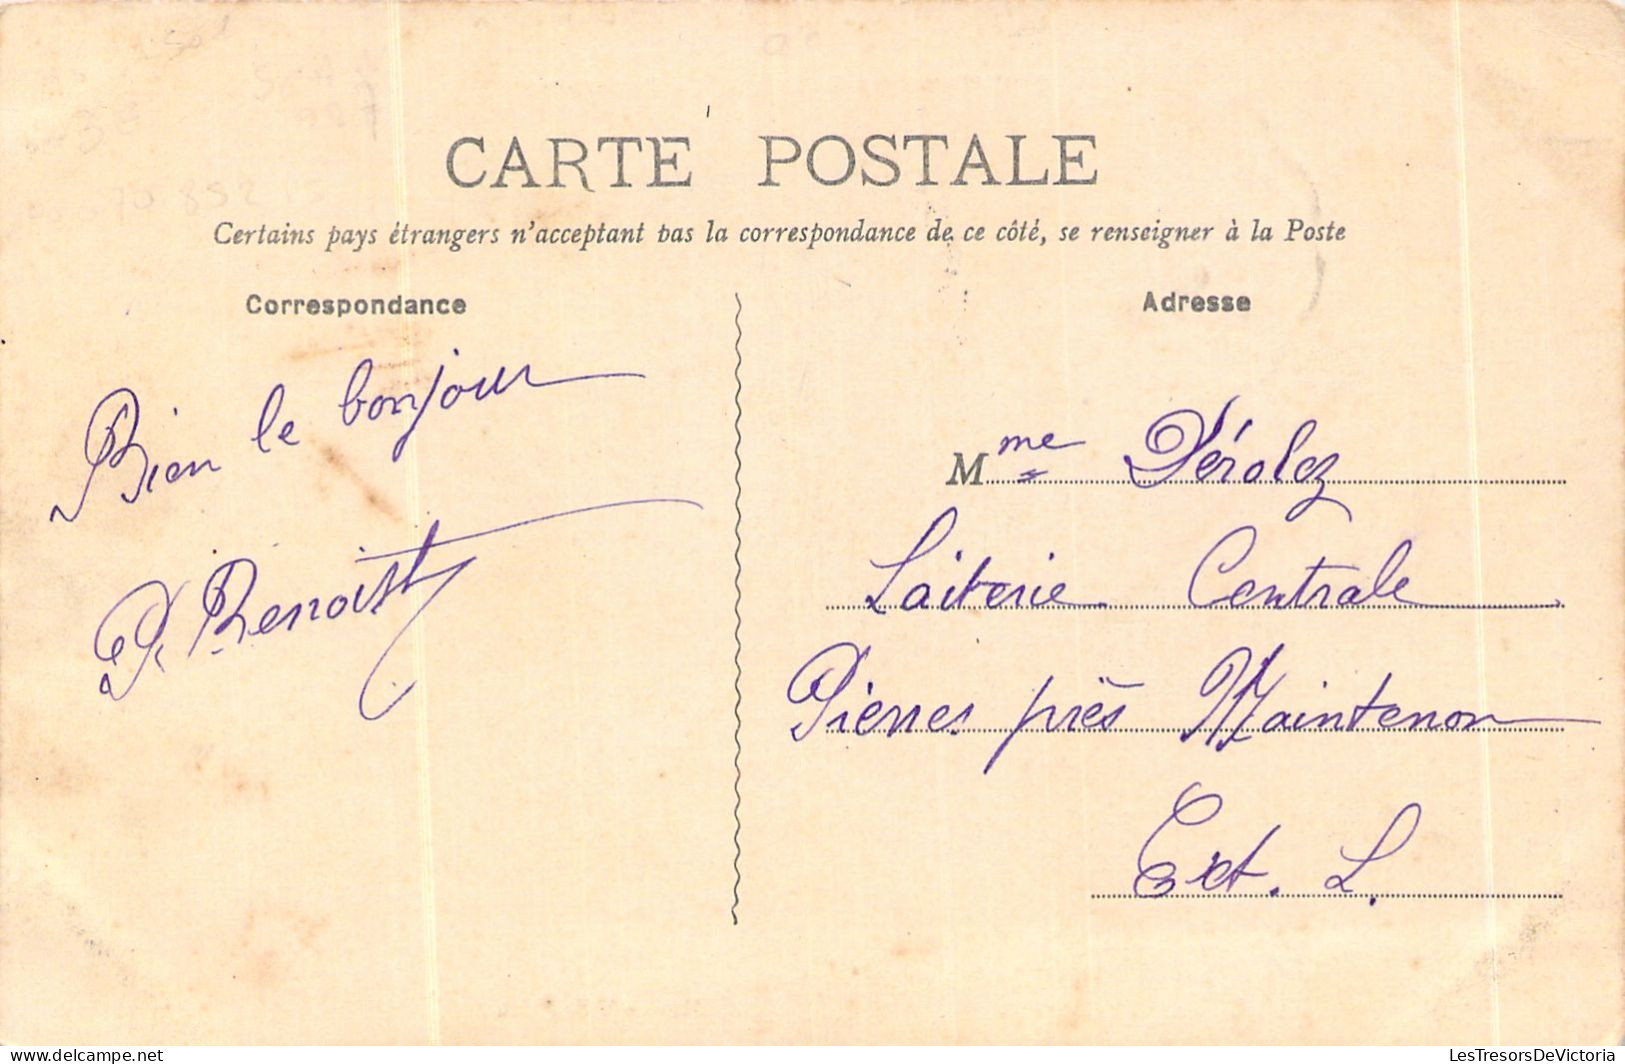 CARTE POSTALE
Certains pays étrangers n'acceptant pas la correspondance de ce côté, se renseigner à la Poste
Correspondance
Bien le bonjour
P. Benoist
Adresse
Mme Dérolez
Laiterie Centrale
Pierres près Maintenon
Et. L.
delcampe.net
LesTresorsDeVictoria